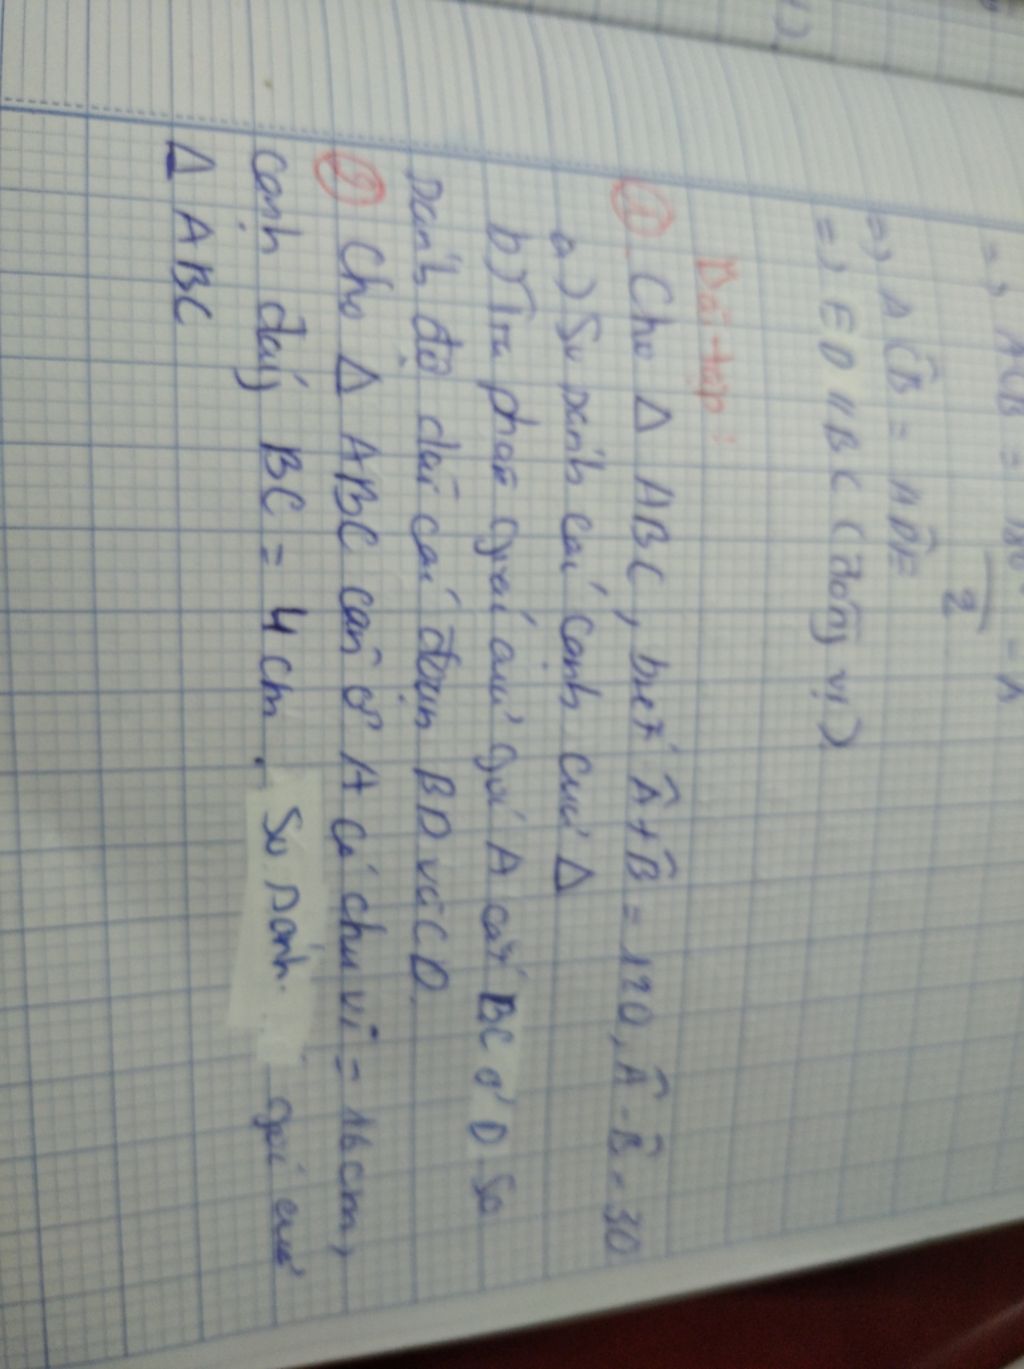 => ACB =
2
=> AĈB = AD̂E
=> ED // BC (đồng vị)
Bài tập:
① Cho Δ ABC, biết Â + B̂ = 120, Â - B̂ = 30
a) So sánh các cạnh của Δ
b) Tia phân giác của góc A cắt BC ở D. So
sánh độ dài các đoạn BD và CD.
② Cho Δ ABC cân ở A có chu vi = 16cm,
cạnh đáy BC = 4 cm. So sánh góc của
Δ ABC